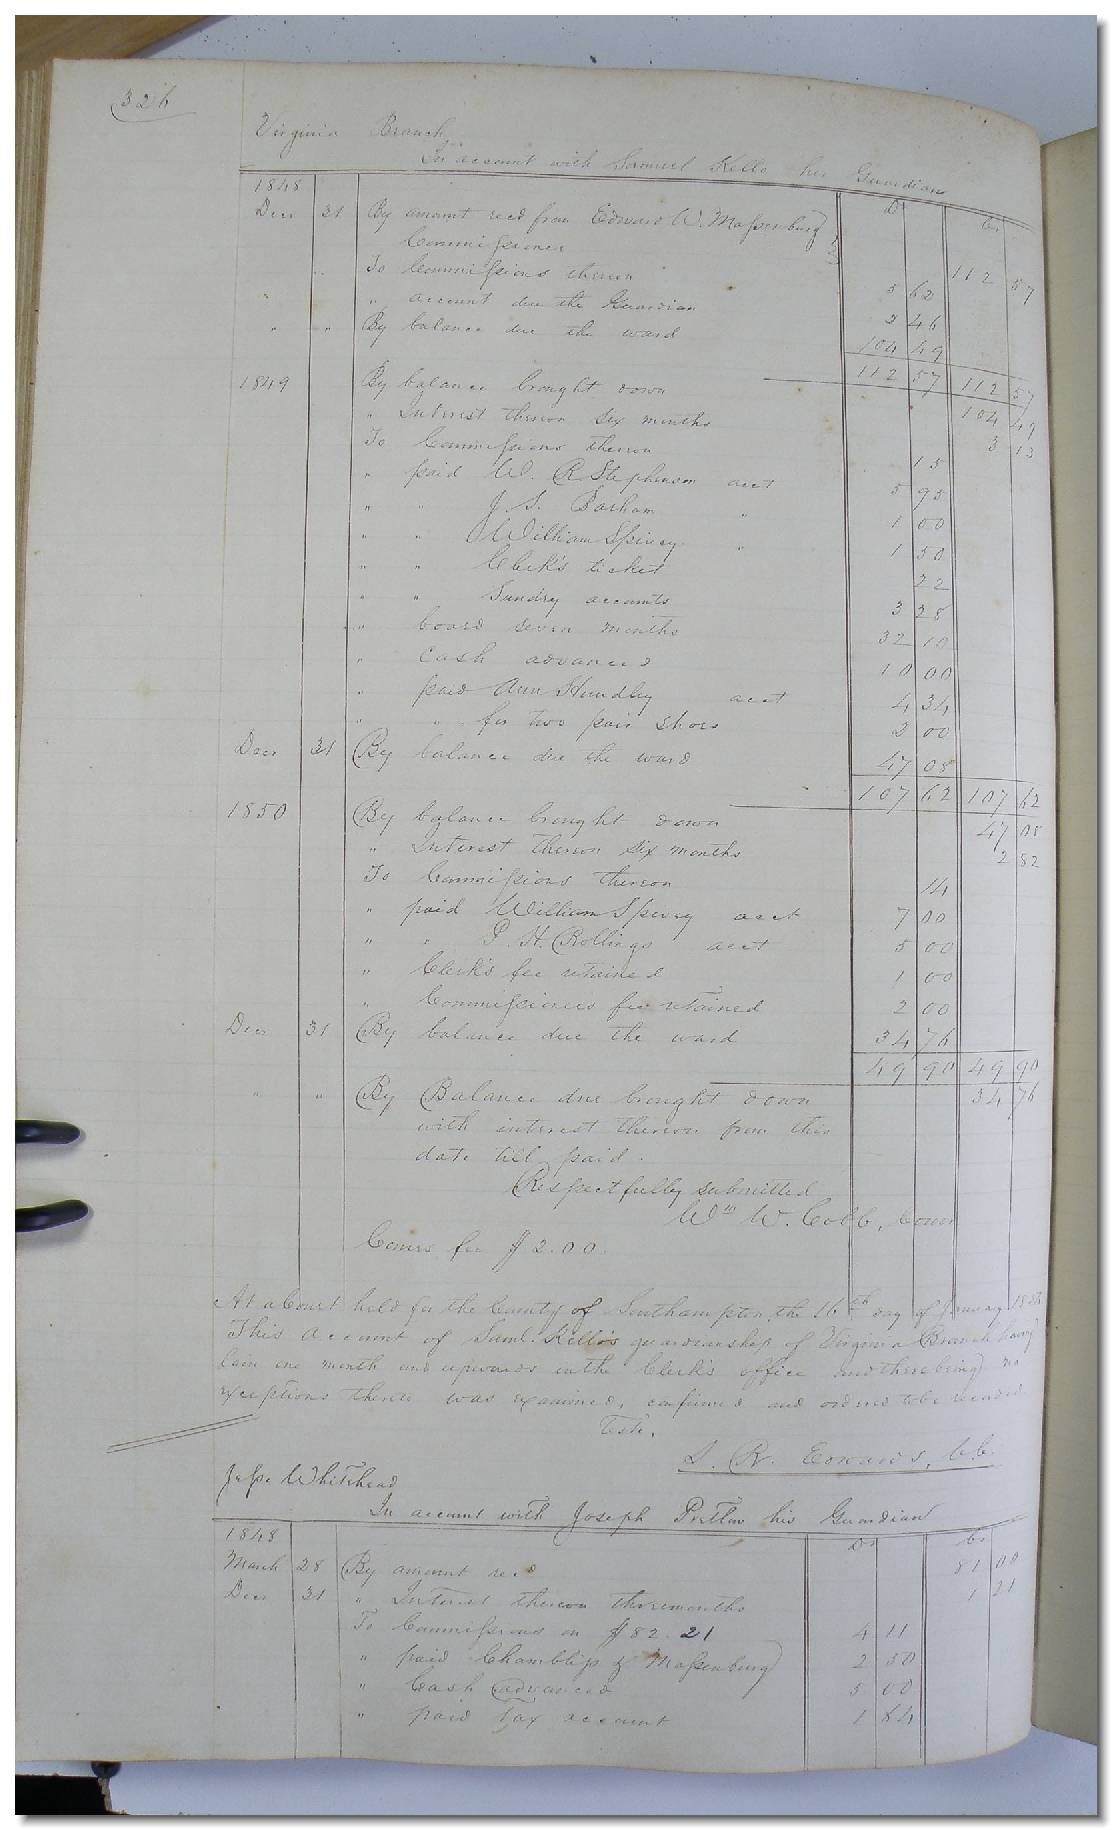 326
Virginia Branch
In account with Samuel Kello her Guardian
1848 Dr Cr
Decr 31 By amount recd from Edward W. Massenburg
Commissioner 112 57
To Commissions thereon 5 62
" " account due the Guardian 2 46
" " By balance due the ward 104 49
112 57 112 57
1849 By balance brought down 104 49
" Interest thereon six months 3 13
To Commissions thereon 15
" paid W. R Stephenson acct 5 95
" " J. S. Parham " 1 00
" " William Spivey " 1 50
" " Clerk's ticket 22
" " Sundry accounts 3 28
" board seven months 32 10
" Cash advanced 10 00
" paid Ann Hundley acct 4 34
" " for two pair shoes 2 00
Decr 31 By balance due the ward 47 08
107 62 107 62
1850 By balance brought down 47 08
" Interest thereon six months 2 82
To Commissions thereon 14
" paid William Spivey acct 7 00
" " P. H. Rollings acct 5 00
" Clerk's fee retained 1 00
" Commissioners fee retained 2 00
Decr 31 By balance due the ward 34 76
49 90 49 90
" " By Balance due brought down 34 76
with interest thereon from this
date till paid.
Respectfully submitted
Wm W. Cobb, Comr
Comrs fee $2.00.
At a Court held for the County of Southampton the 16th day of January
This Account of Saml. Kello's guardianship of Virginia Branch having
lain one month and upwards in the Clerk's office and there being no
exceptions thereto was examined, confirmed and ordered to be recorded
Teste.
L. R. Edwards, C.C.
Jesse Whitehead
In account with Joseph Pretlow his Guardian
1848 Dr Cr
March 28 By amount recd 81 00
Decr 31 " Interest thereon three months 1 21
To Commissions on $82.21 4 11
" paid Chambliss & Massenburg 2 50
" Cash advanced 5 00
" paid Tax account 1 84